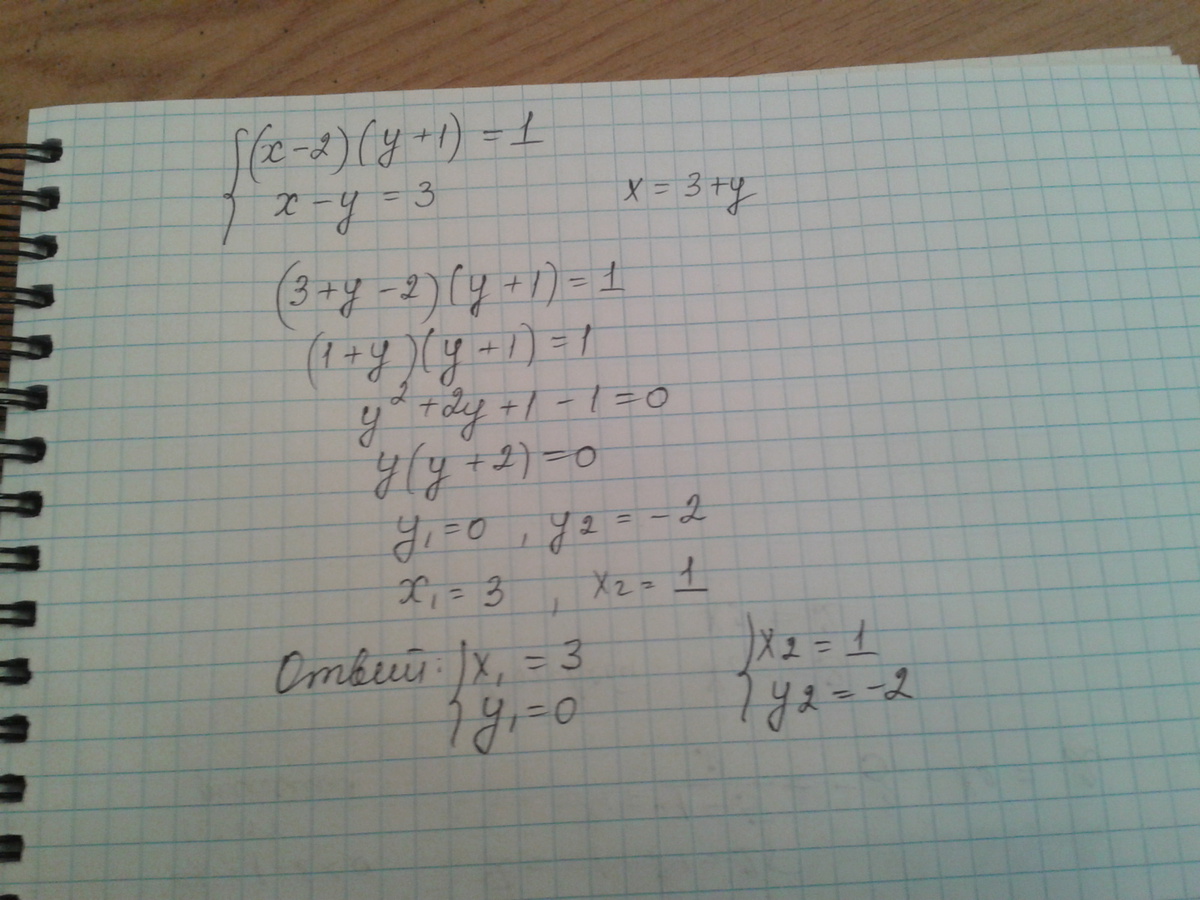 (x-2)(y+1) = 1
x-y = 3    x = 3+y
(3+y-2)(y+1) = 1
(1+y)(y+1) = 1
y²+2y+1-1=0
y(y+2)=0
y₁=0, y₂=-2
x₁=3, x₂=1
Ответ: { x₁=3    { x₂=1
y₁=0    y₂=-2